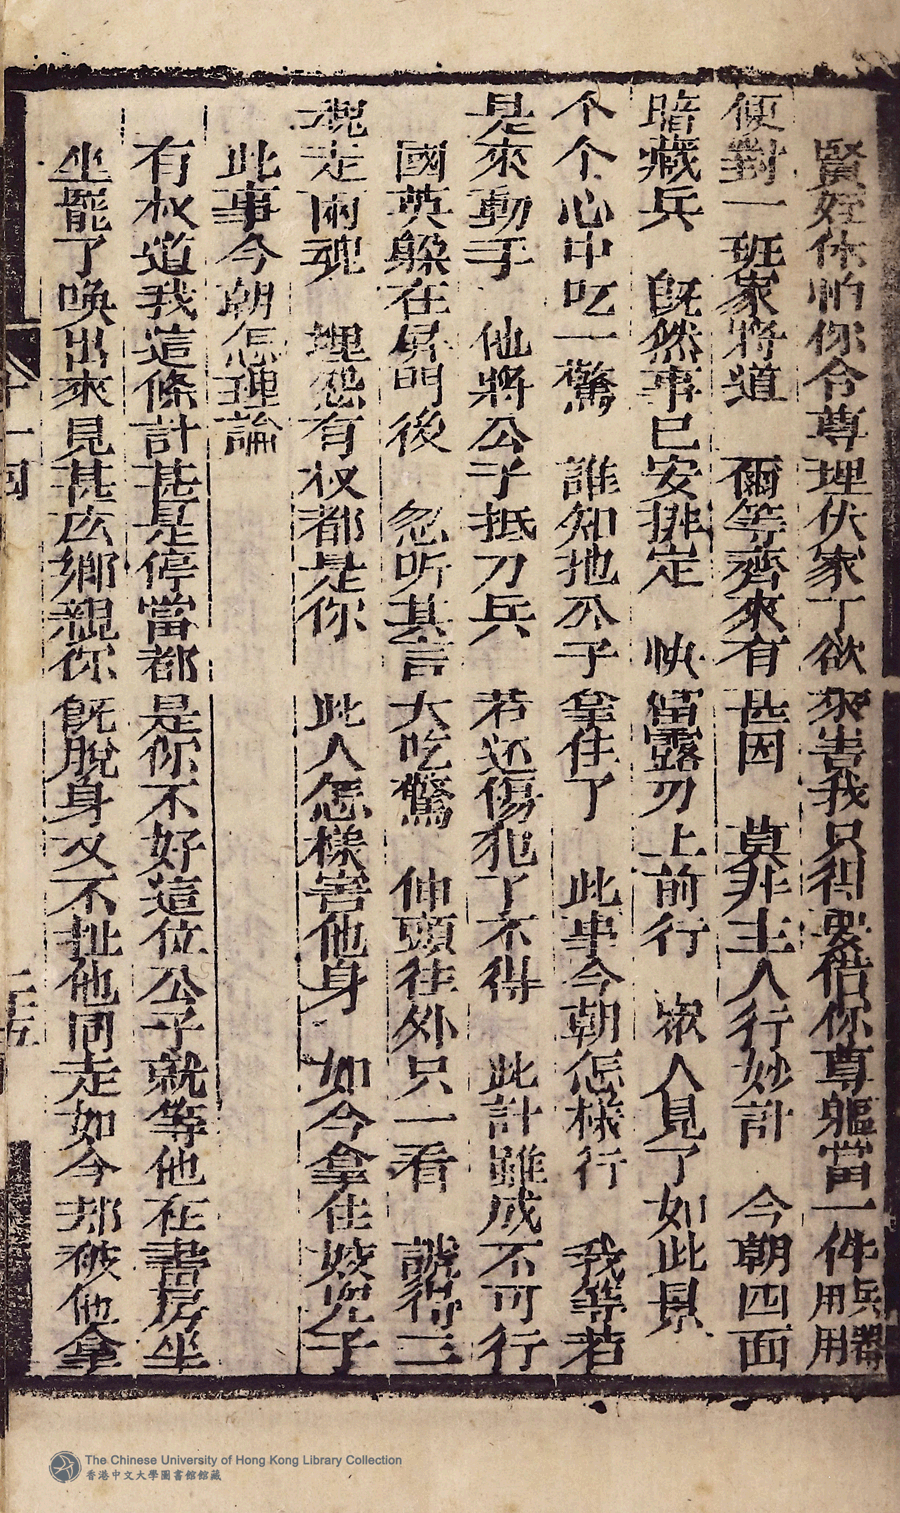 賢姪休怕你令尊埋伏家丁欲來害我只得要借你尊軀當一件兵器用用
便對一班家將道　爾等齊來有甚因　莫非主人行妙計　今朝四面
暗藏兵　既然事已安排定　快留露刃上前行　眾人見了如此景
个个心中吃一驚　誰知把公子拿住了　此事今朝怎樣行　我等若
是來動手　他將公子抵刀兵　若还傷犯了不得　此計雖成不可行
國英躱在屏門後　忽听其言大吃驚　伸頭往外只一看　諕得三
魂走兩魂　埋怨有权都是你　此人怎樣害他身　如今拿住姣児子
此事今朝怎理論
有权道我這條計甚是停當都是你不好這位公子就等他在書房坐
坐罷了喚出來見甚庅鄉親你既脫身又不扯他同走如今却被他拿
十一回
二五
The Chinese University of Hong Kong Library Collection
香港中文大學圖書館館藏